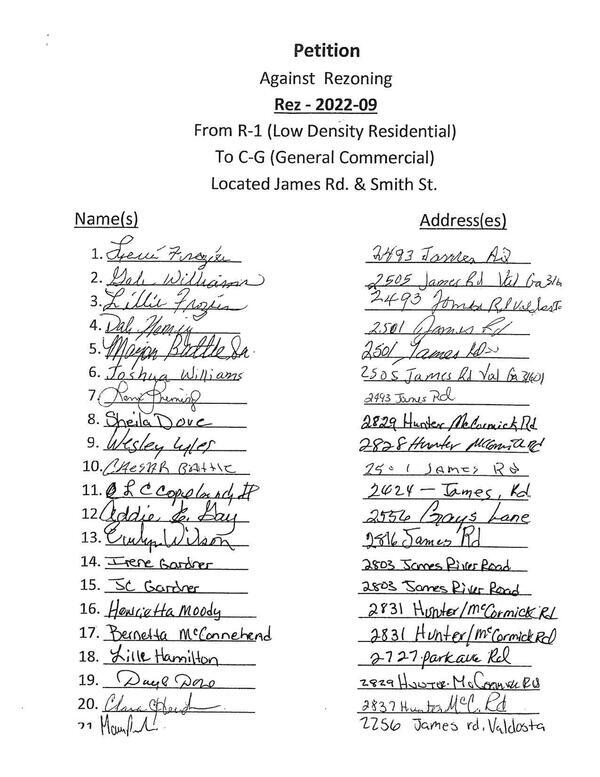 Petition
Against Rezoning
Rez - 2022-09
From R-1 (Low Density Residential)
To C-G (General Commercial)
Located James Rd. & Smith St.
Name(s) Address(es)
1. Frozier 2493 James
2. Gale Williams 2505 James Rd Val Ga 316
3. Lillie Frozier 2493 James Rd
4. Dale 2501 James Rd
5. Major Battle Sr. 2501 James Rd
6. Joshua Williams 2505 James Rd Val Ga 31601
7. 2493 James Rd
8. Sheila Dove 2829 Hunter McCormick Rd
9. Wesley Lyles 2828 Hunter Rd
10. BATTLE JAMES Rd
11. 2424 - James, Rd
12. Addie E. Gay 2556 Grays Lane
13. Wilson 2816 James Rd
14. Irene Gardner 2803 James River Road
15. JC Gardner 2803 James River Road
16. Henrietta Moody 2831 Hunter/McCormick Rd
17. Bernetta McConnehead 2831 Hunter/McCormick Rd
18. Lille Hamilton 2727 park ave Rd
19. 2829 Rd
20. Clara 2837 Hunter McC. Rd
21. 2256 James rd, Valdosta